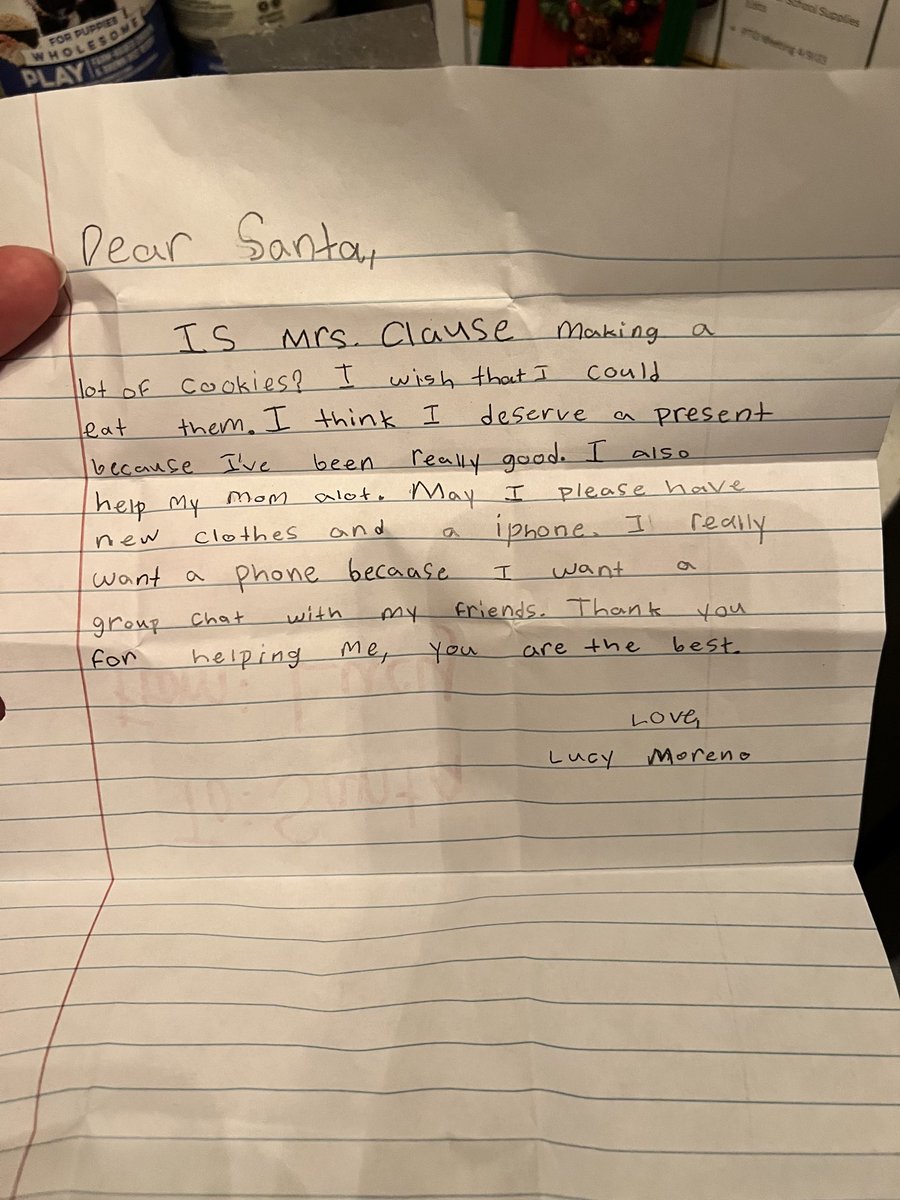 FOR PUPPIES
WHOLESOME
PLAY
School Supplies
Lists
PTO Meeting
Dear Santa,
Is Mrs. Clause making a
lot of cookies? I wish that I could
eat them. I think I deserve a present
because I've been really good. I also
help my mom alot. May I please have
new clothes and a iphone. I really
want a phone becaase I want a
group chat with my friends. Thank you
for helping me, you are the best.
Love,
Lucy Moreno